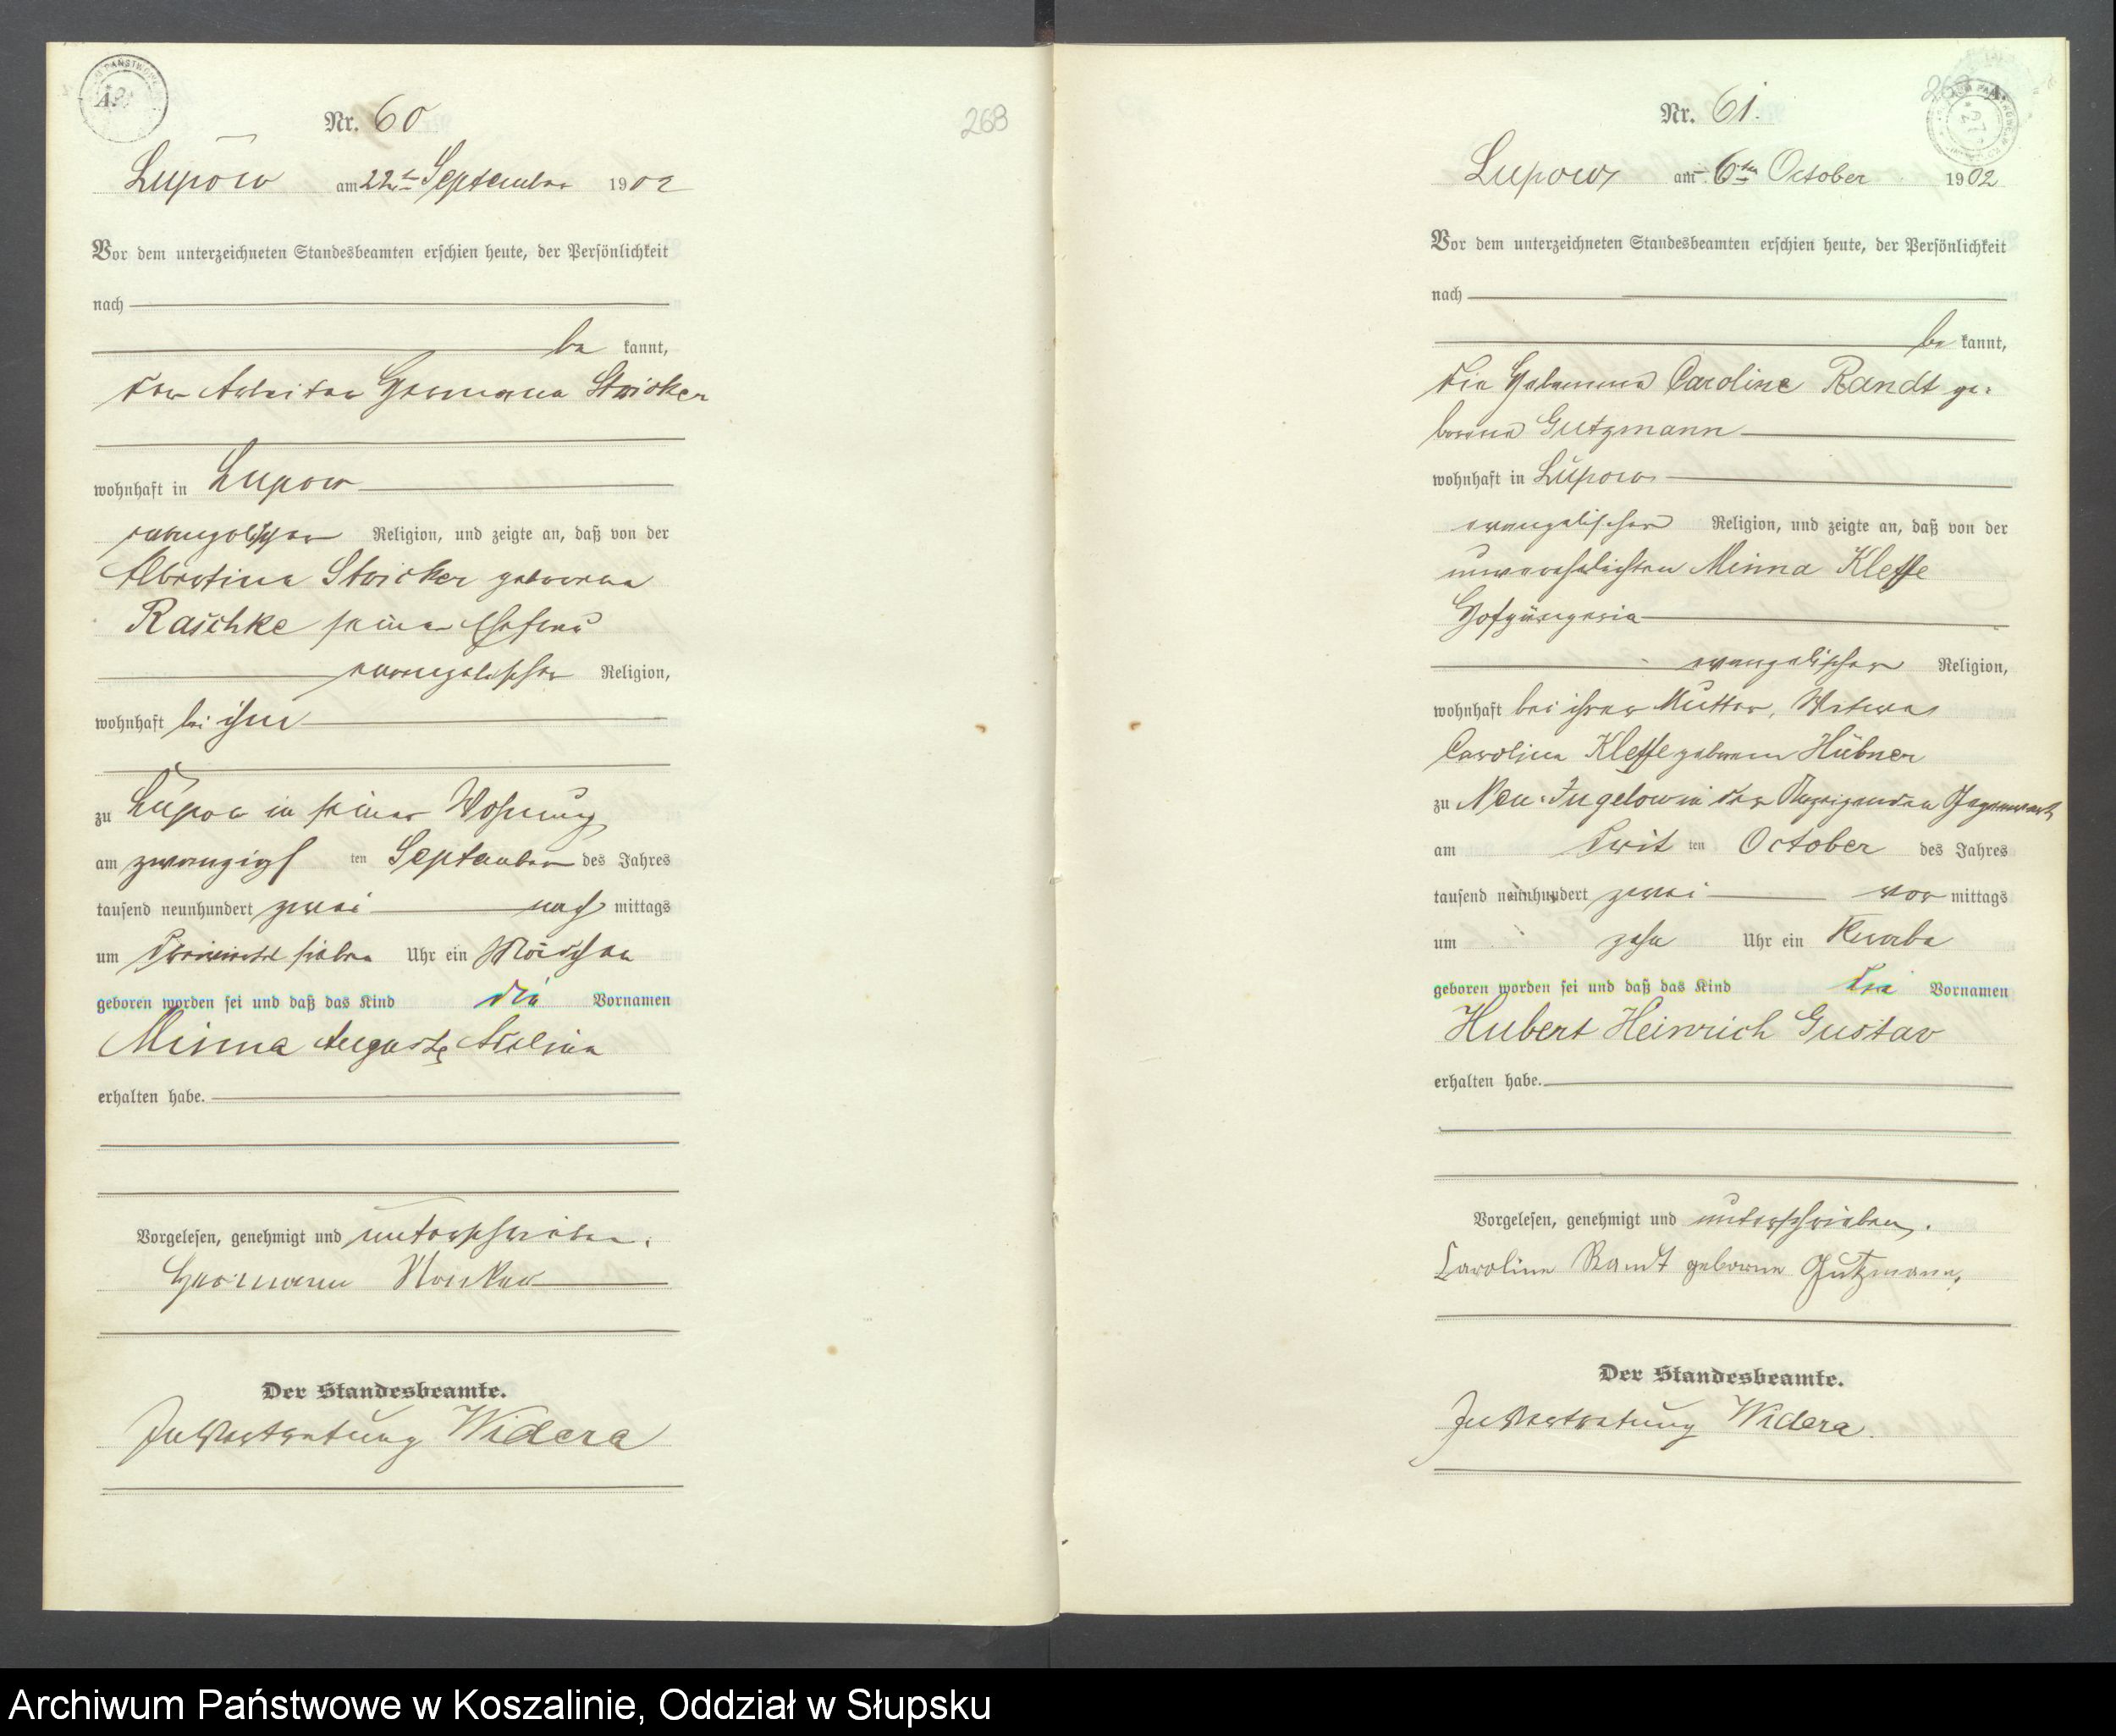 Nr. 60
Lupow am 22ten September 1902
Vor dem unterzeichneten Standesbeamten erschien heute, der Persönlichkeit
nach
be kannt,
der Arbeiter Hermann Stricker
wohnhaft in Lupow
evangelischer Religion, und zeigte an, daß von der
Albertine Stricker geborene
Raschke seiner Ehefrau
evangelischer Religion,
wohnhaft bei ihm
zu Lupow in seiner Wohnung
am zwanzigs ten September des Jahres
tausend neunhundert zwei nach mittags
um dreiviertel sieben Uhr ein Mädchen
geboren worden sei und daß das Kind die Vornamen
Minna Auguste
erhalten habe.
Vorgelesen, genehmigt und unterschrieben.
Hermann
Der Standesbeamte.
In Vertretung Widera
268
Nr. 61.
Lupow am 6ten October 1902
Vor dem unterzeichneten Standesbeamten erschien heute, der Persönlichkeit
nach
be kannt,
die Hebamme Caroline Randt ge-
borene Gutzmann
wohnhaft in Lupow
evangelischer Religion, und zeigte an, daß von der
unverehelichten Minna Kleffe
Hofgängerin
evangelischer Religion,
wohnhaft bei ihrer Mutter, Witwe
Caroline Kleffe geborene Hübner
zu Neu-Jugelow in der Anzeigenden Gegenwart
am drit ten October des Jahres
tausend neunhundert zwei vor mittags
um zehn Uhr ein Knabe
geboren worden sei und daß das Kind die Vornamen
Hubert Heinrich Gustav
erhalten habe.
Vorgelesen, genehmigt und unterschrieben.
Caroline Randt geborene Gutzmann,
Der Standesbeamte.
In Vertretung Widera.
Archiwum Państwowe w Koszalinie, Oddział w Słupsku